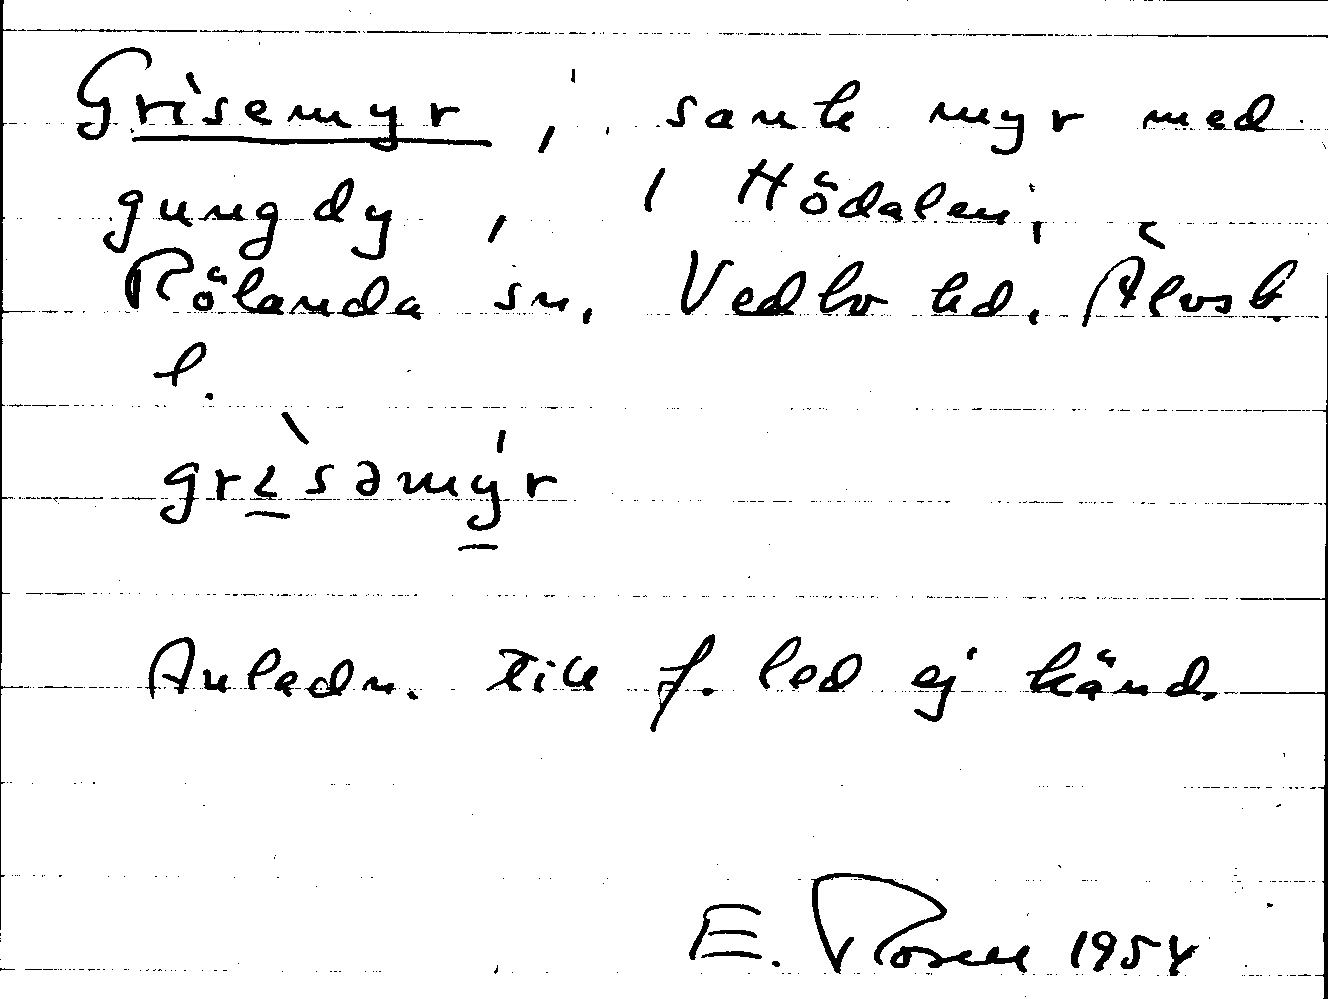 Grisemyr, sank myr med
gungdy, i Hödalen,
Rölanda sn, Vedbo hd, Älvsb.
l.
grɩ̀səmýr
Anledn. till f. led ej känd.
E. Rosell 1954